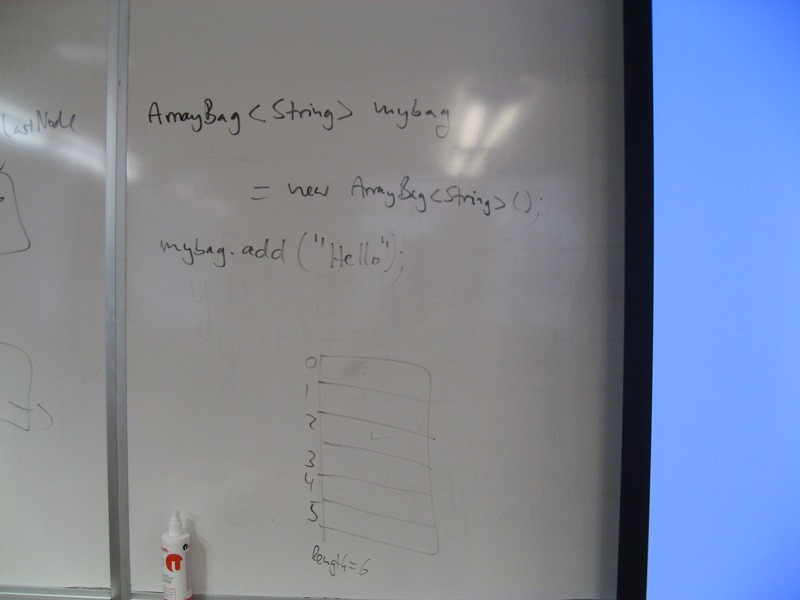 LastNode
ArrayBag<String> mybag
= new ArrayBag<String>();
mybag.add("Hello");
0
1
2
3
4
5
length=6